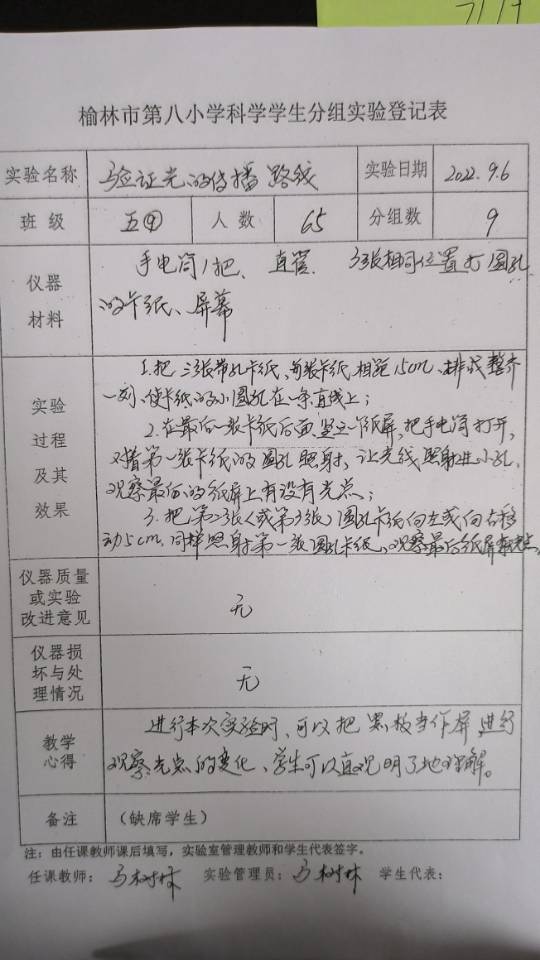 榆林市第八小学科学学生分组实验登记表
实验名称 验证光的传播路线 实验日期 2022.9.6
班 级 五④ 人 数 65 分组数 9
仪器
材料
手电筒1把、直管、3张相同位置打圆孔
的卡纸、屏幕
实验
过程
及其
效果
1.把三张带孔卡纸、每张卡纸相距15cm、排成整齐
一列、使卡纸的小圆孔在一条直线上;
2.在最后一张卡纸后面竖立一个纸屏,把手电筒打开,
对着第一张卡纸的圆孔照射,让光线照射进小孔,
观察最后的纸屏上有没有光点;
3.把第2张(或第3张)圆孔卡纸向左或向右移
动5cm,同样照射第一张圆孔卡纸,观察最后纸屏
仪器质量
或实验
改进意见
无
仪器损
坏与处
理情况
无
教学
心得
进行本次实验时、可以把黑板当作屏,进行
观察光点的变化、学生可以直观明了地理解。
备注 (缺席学生)
注:由任课教师课后填写,实验室管理教师和学生代表签字。
任课教师: 马树林 实验管理员: 马树林 学生代表: